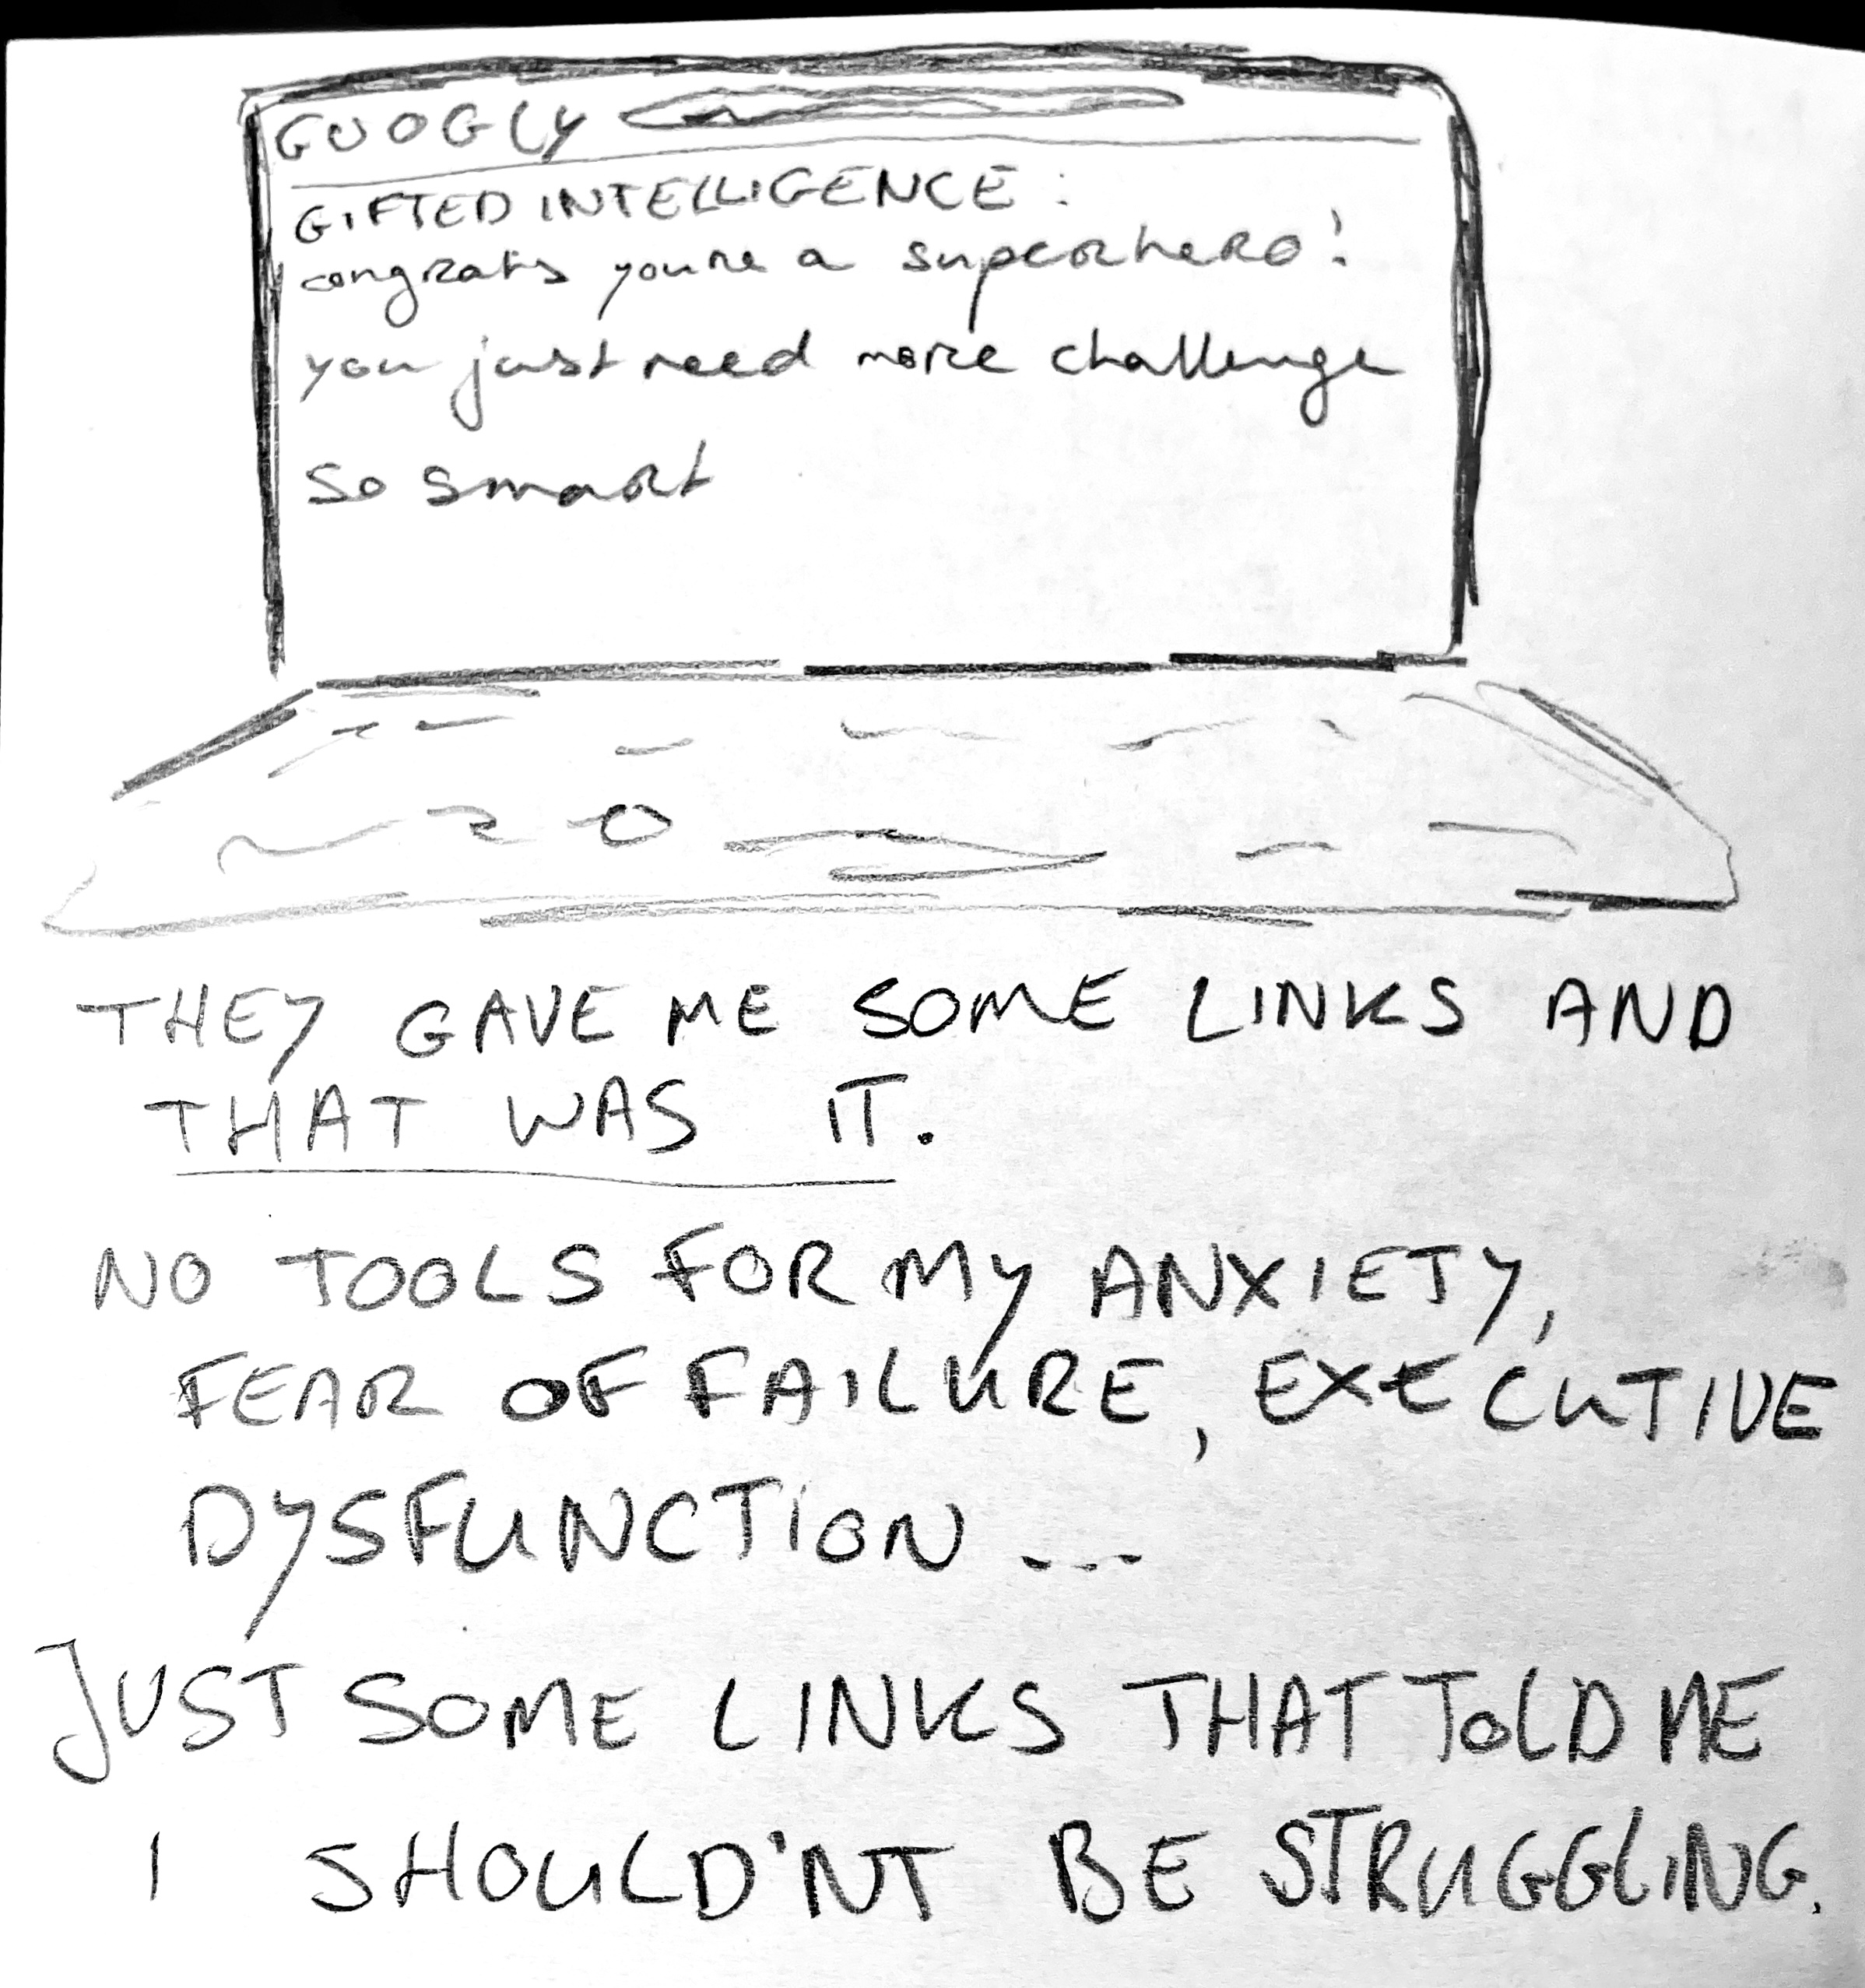 GUOGLY
GIFTED INTELLIGENCE :
congrats you're a superhero!
you just need more challenge
so smart
THEY GAVE ME SOME LINKS AND
THAT WAS IT.
NO TOOLS FOR MY ANXIETY,
FEAR OF FAILURE, EXECUTIVE
DYSFUNCTION ...
JUST SOME LINKS THAT TOLD ME
I SHOULD'NT BE STRUGGLING.